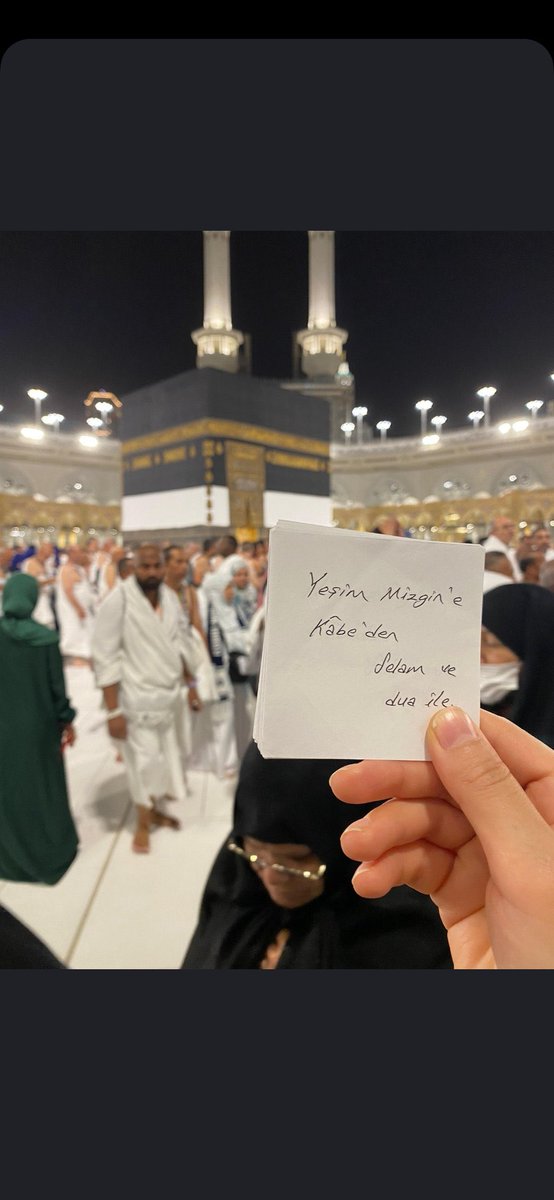 Yeşim Mizgin'e
Kâbe'den
Selam ve
dua ile.